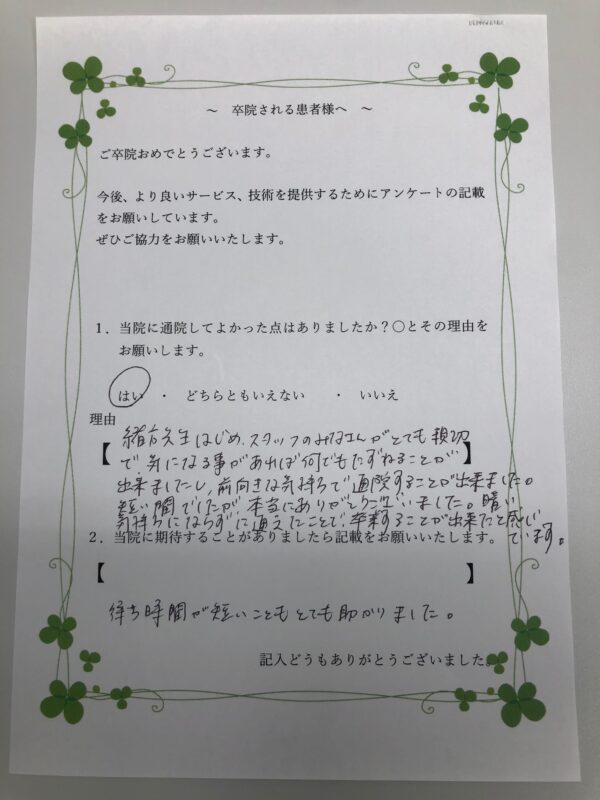 ～ 卒院される患者様へ ～
ご卒院おめでとうございます。
今後、より良いサービス、技術を提供するためにアンケートの記載
をお願いしています。
ぜひご協力をお願いいたします。
1．当院に通院してよかった点はありましたか？○とその理由を
お願いします。
はい ・ どちらともいえない ・ いいえ
理由
【 緒方先生はじめ、スタッフのみなさんがとても親切
で、気になる事があれば何でもたずねることが 】
出来ましたし、前向きな気持ちで通院することが出来ました。
短い間でしたが、本当にありがとうございました。暗い
気持ちにならずに通えたことで、卒業することが出来たと感じ
ています。
2．当院に期待することがありましたら記載をお願いいたします。
【 】
待ち時間が短いこともとても助かりました。
記入どうもありがとうございました。